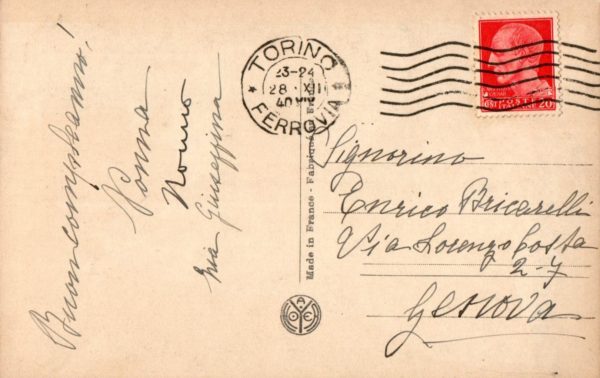 Buon compleanno!
Nonna
Nonno
zia Giuseppina
TORINO
23-24
28 · XII
40 XIX
FERROVIA
Made in France - Fabriqué en France
Signorino
Enrico Bricarelli
Via Lorenzo Costa
2-7
Genova